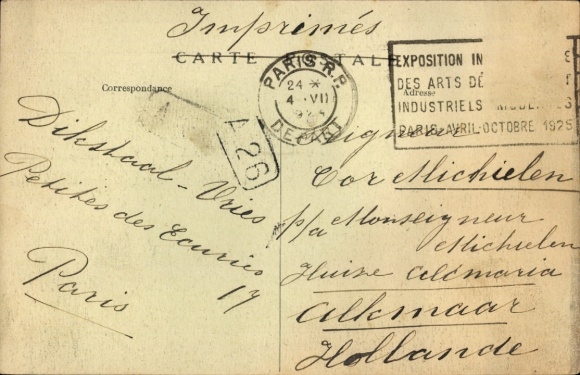 Imprimés
CARTE POSTALE
Correspondance
Adresse
PARIS R.P.
24 *
4 - VII
DEPART
EXPOSITION IN
DES ARTS DÉ
INDUSTRIELS MODERNES
PARIS-AVRIL-OCTOBRE 1925
A 26
Dikstaal - Vries
Petites des Ecuries
17
Paris
Signor
Cor Michielen
p/a Monseigneur
Michielen
Huize
Alkmaar
Hollande